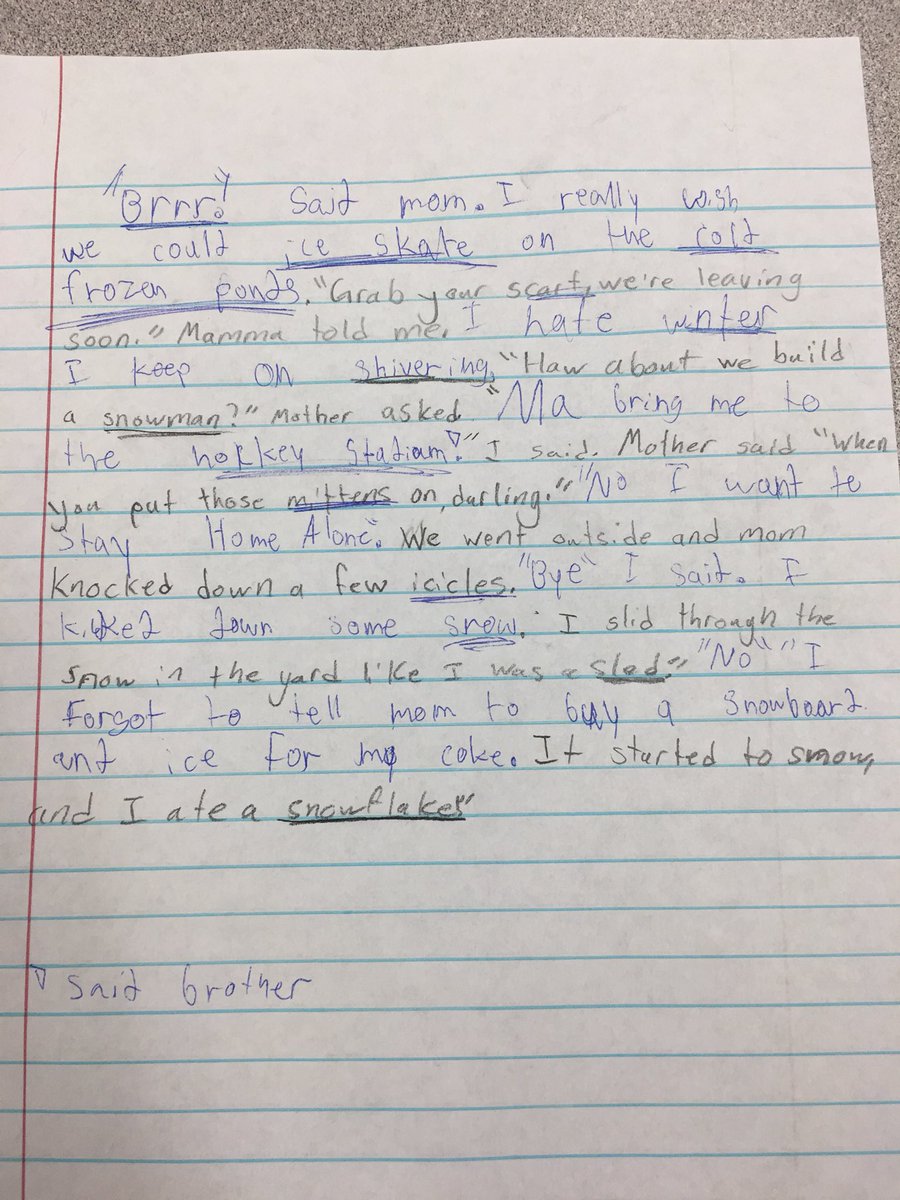 "Brrr!" Said mom. I really wish
we could ice skate on the cold
frozen ponds. "Grab your scarf, we're leaving
soon." Mamma told me. I hate winter
I keep on shivering. "Haw about we build
a snowman?" Mother asked. "Ma bring me to
the hokkey Stadiam." I said. Mother said "When
you put those mittens on, darling." "No I want to
Stay Home Alone". We went outside and mom
knocked down a few icicles. "Bye" I said. I
kicked down some snow. I slid through the
snow in the yard like I was a sled." "No" "I
Forgot to tell mom to buy a snowboard
and ice for my coke. It started to snow,
and I ate a snowflake!"
▽ said brother